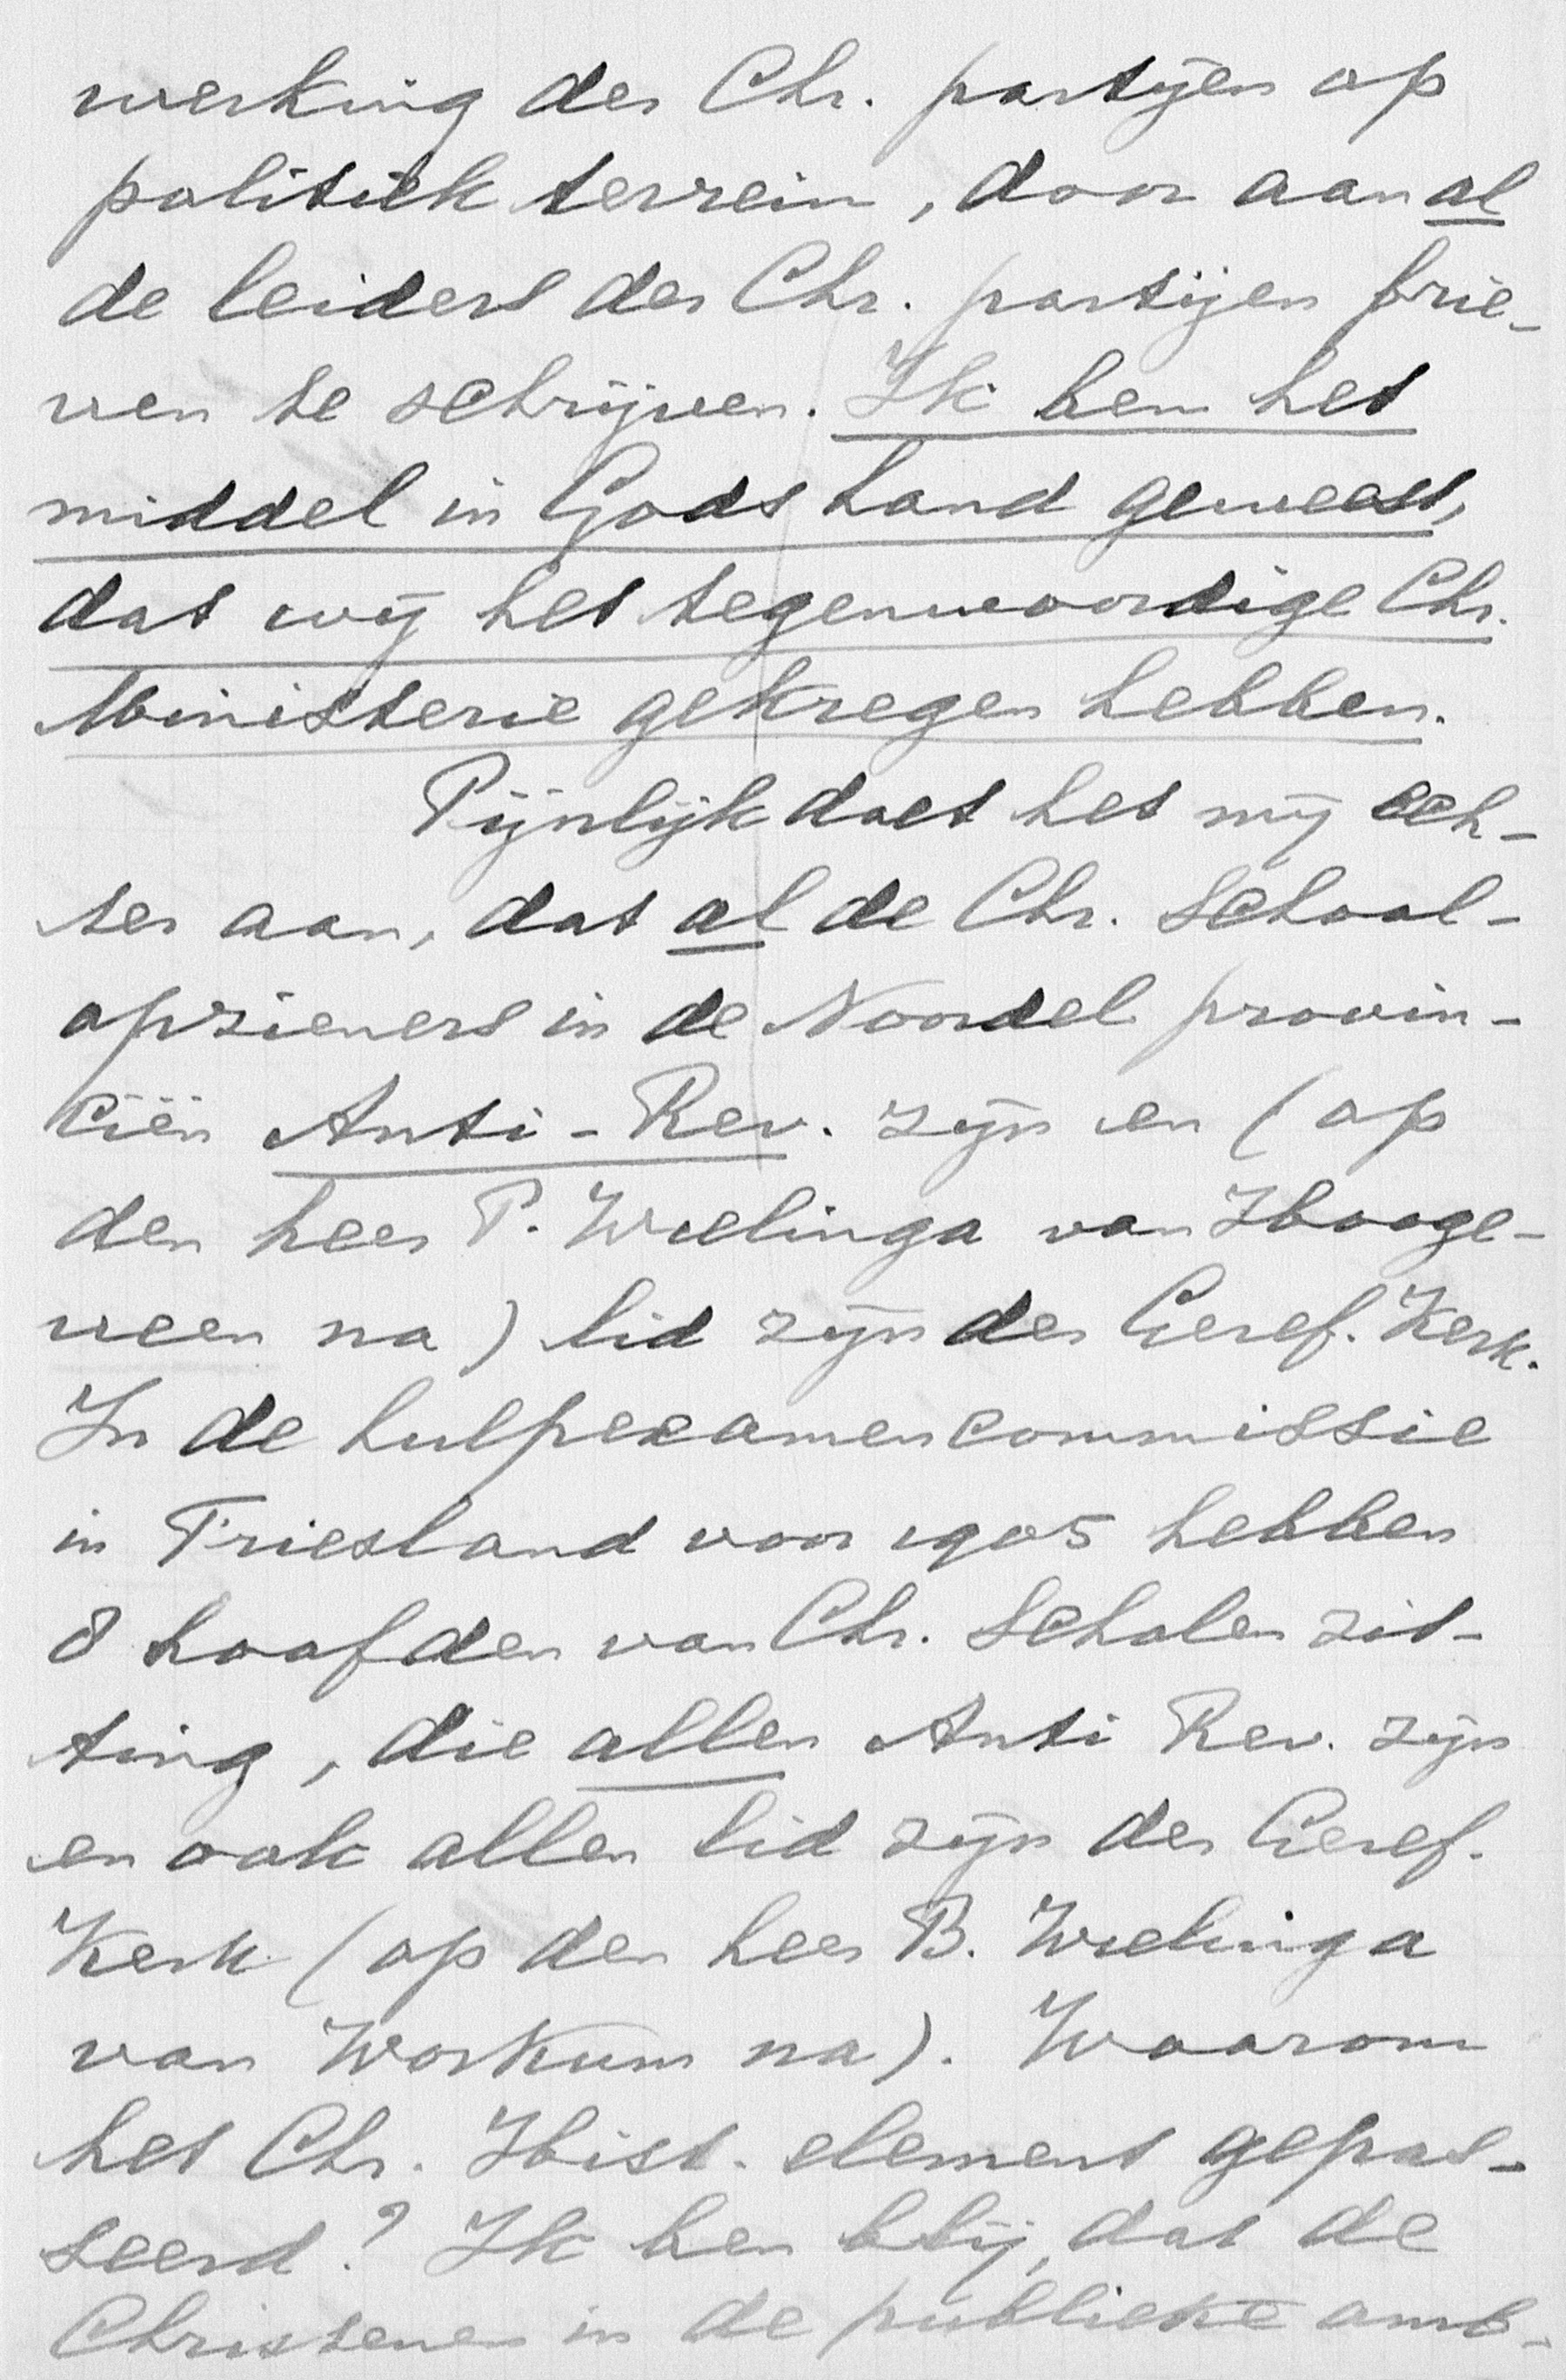 werking der Chr. partijen op
politiek terrein, door aan al
de leiders der Chr. partijen brie-
ven te schrijven. Ik ben het
middel in Gods hand geweest,
dat wij het tegenwoordige Chr.
Ministerie gekregen hebben.
Pijnlijk doet het mij ech-
ter aan, dat al de Chr. School-
opzieners in de Noordel provin-
ciën Anti-Rev. zijn en (op
den heer P. Wielinga van Hooge-
veen na) lid zijn der Geref. Kerk.
In de hulpexamencommissie
in Friesland voor 1905 hebben
8 hoofden van Chr. Scholen zit-
ting, die allen Anti Rev. zijn
en ook allen lid zijn der Geref.
Kerk (op den heer B. Wielinga
van Workum na). Waarom
het Chr. Hist. element gepas-
seerd? Ik ben blij, dat de
Christenen in de publieke amb-